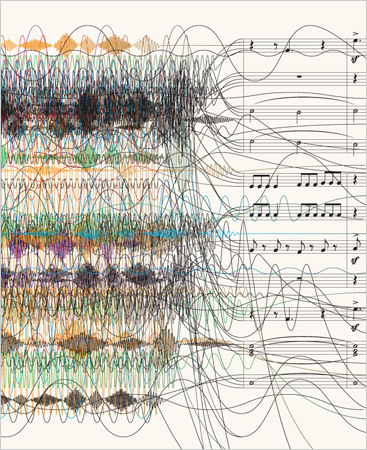 sf
sf
sf